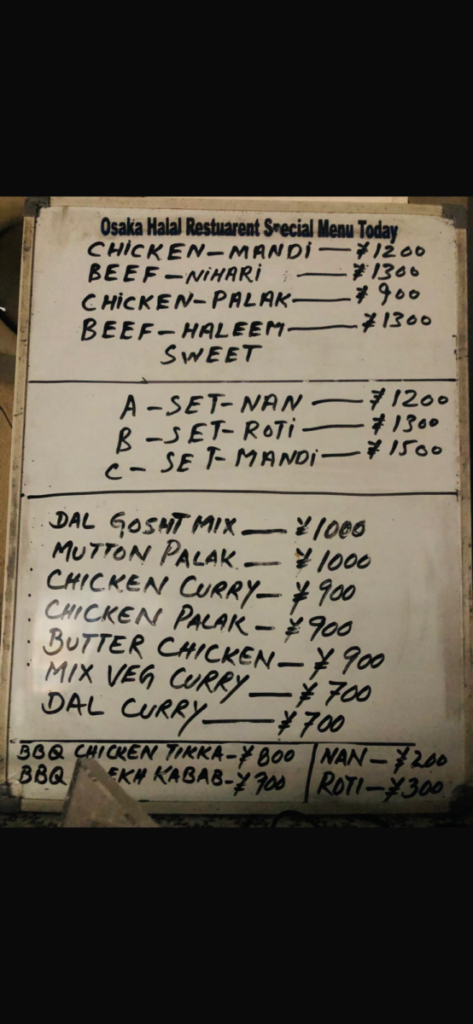 Osaka Halal Restuarent Special Menu Today
CHICKEN-MANDI — ¥1200
BEEF-NIHARI — ¥1300
CHICKEN-PALAK — ¥900
BEEF-HALEEM — ¥1300
SWEET
A-SET-NAN — ¥1200
B-SET-ROTI — ¥1300
C-SET-MANDI — ¥1500
DAL GOSHT MIX — ¥1000
MUTTON PALAK — ¥1000
CHICKEN CURRY — ¥900
CHICKEN PALAK — ¥900
BUTTER CHICKEN — ¥900
MIX VEG CURRY — ¥700
DAL CURRY — ¥700
BBQ CHICKEN TIKKA-¥800
BBQ KABAB-¥900
NAN-¥200
ROTI-¥300